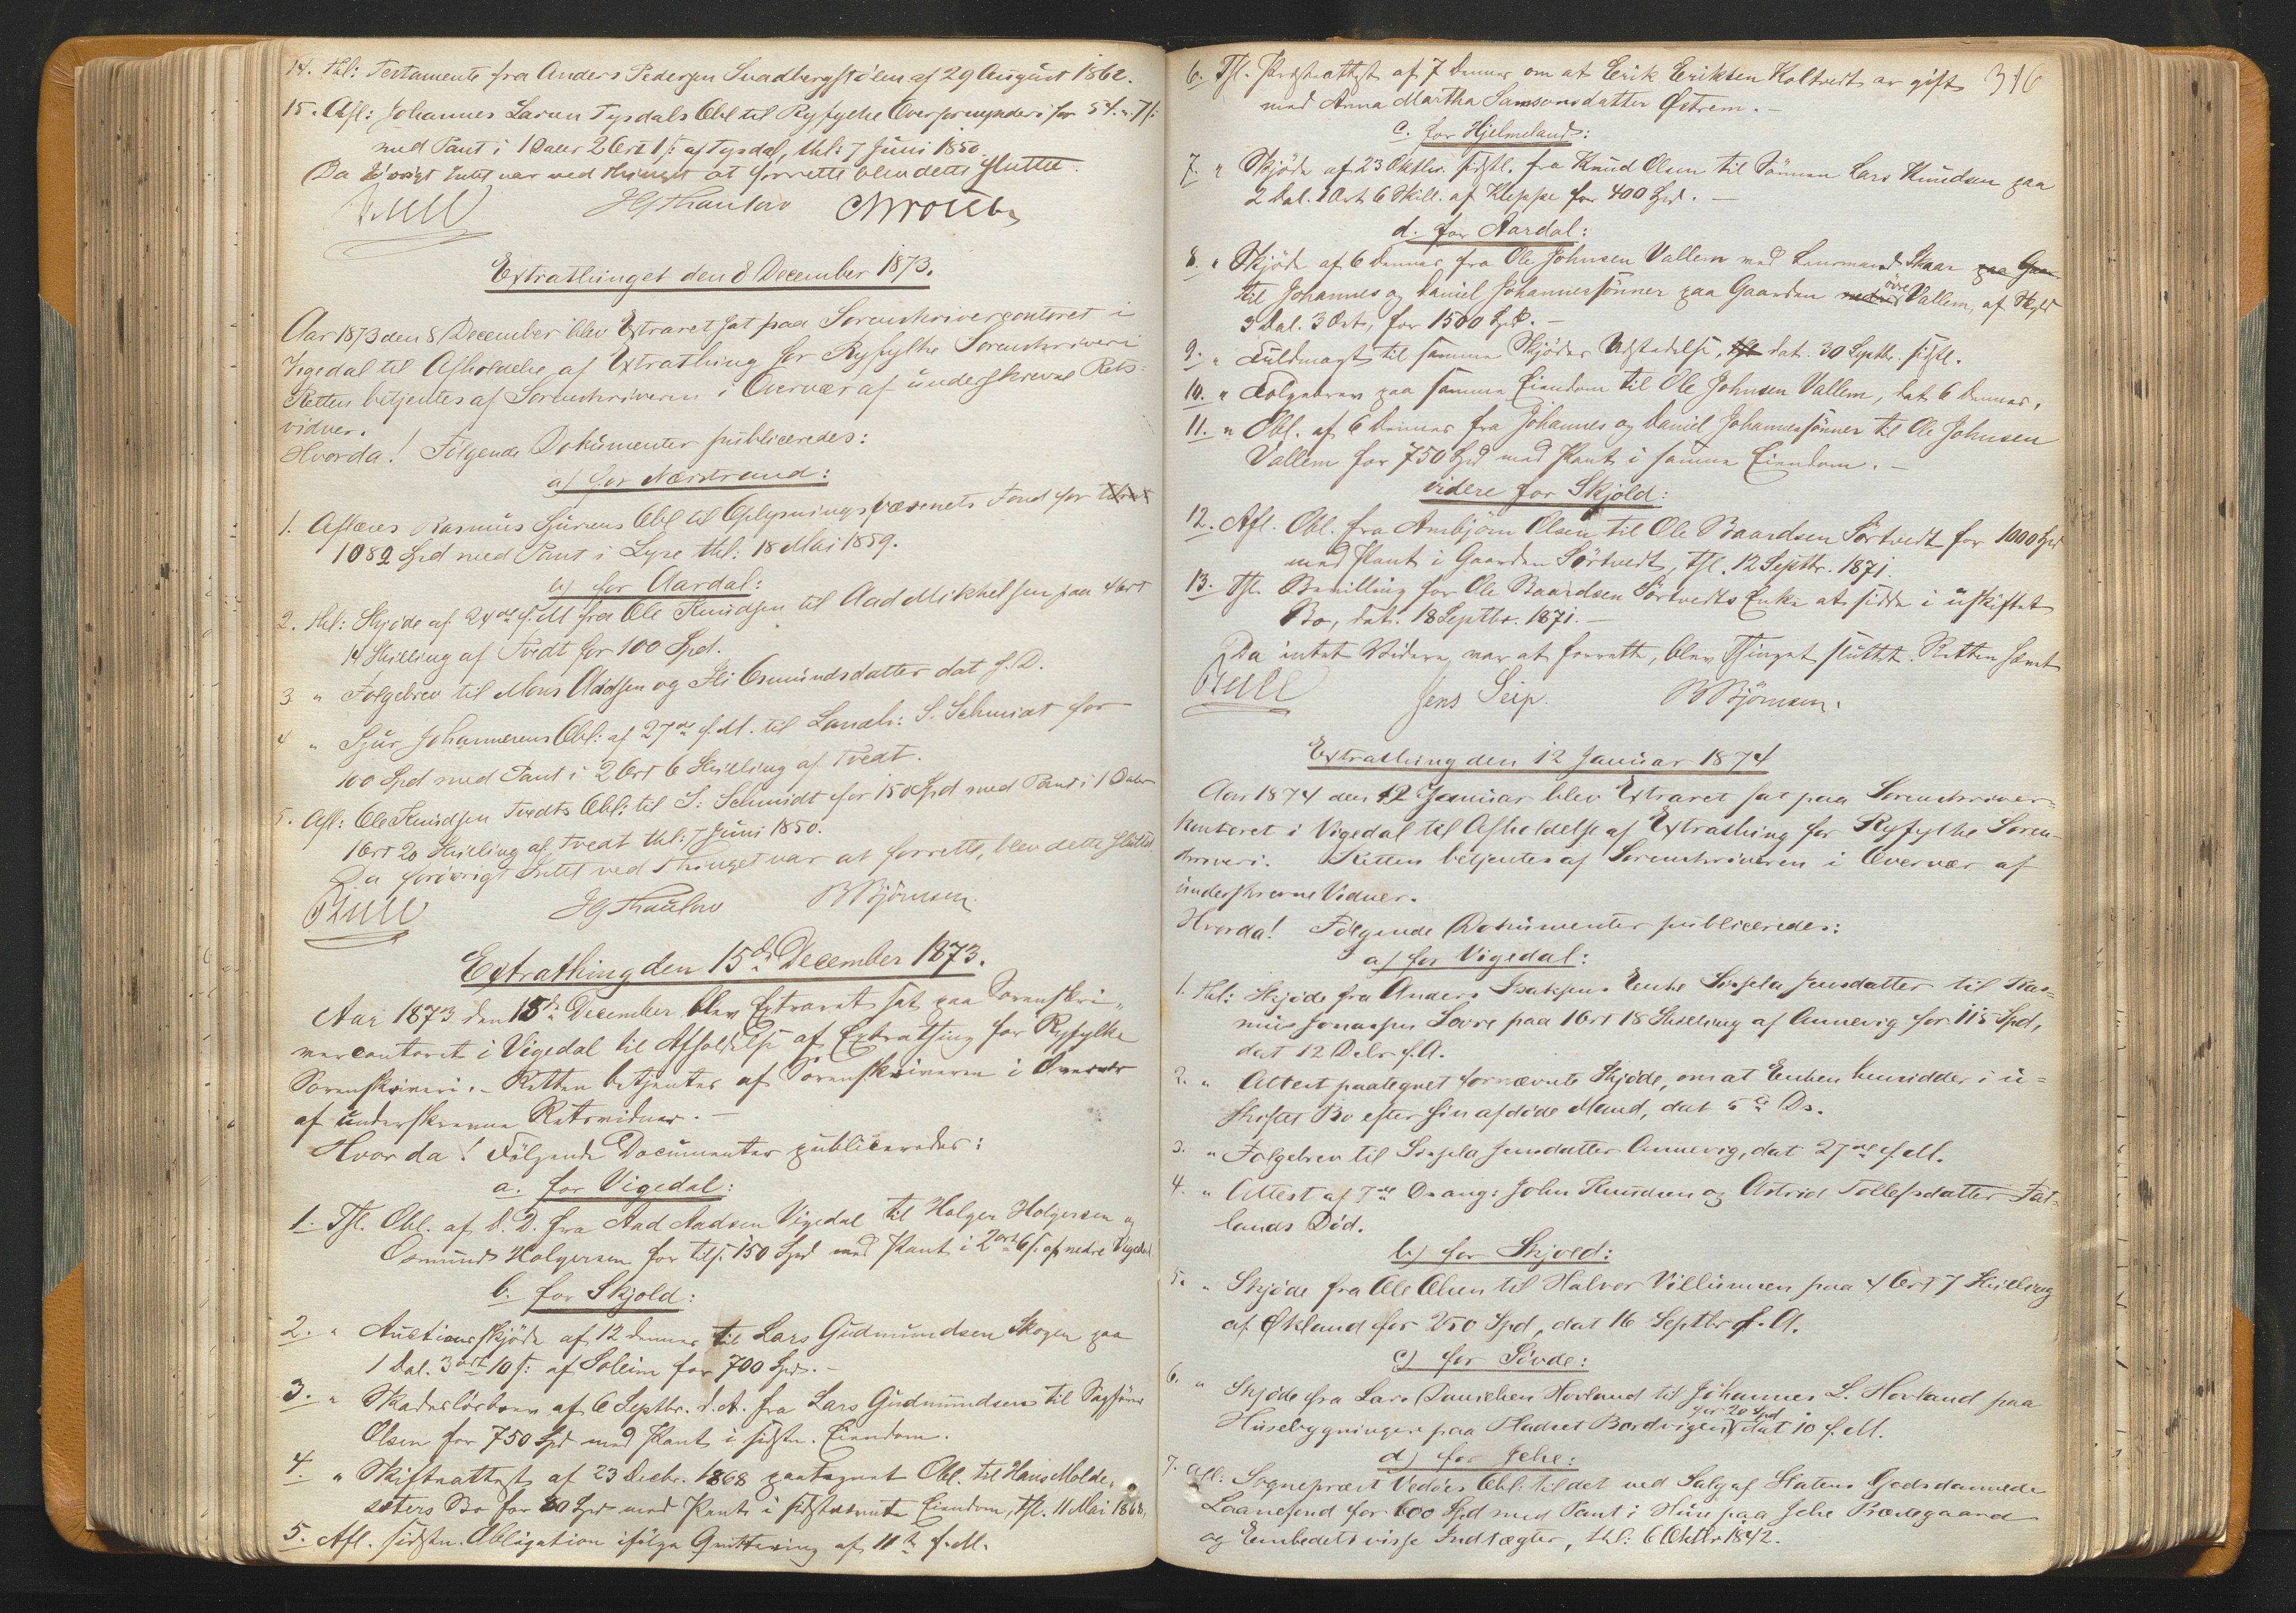 14. thl: Testamente fra Anders Pedersen Svadbergstölen af 29 August 1862.
15. Afl: Johannes Larsen Tysdals Obl til Ryfylke Overformynderi for 54.. 7 s:
med Pant i 1 Daler 2 Ort 1 s: af Tysdal, thl: 7 Juni 1850.
Da övrigt Intet var ved Thinget at forrette blev dette sluttet.
JG Thaulow
Extrathinget den 8 December 1873.
Aar 1873 den 8 December blev Extraret sat paa Sorenskrivercontoret i
Vigedal til Afholdelse af Extrathing for Ryfylke Sorenskriveri
Retten betjentes af Sorenskriveren i Overvær af underskrevne Rets=
vidner.
Hvorda! Følgende Dokumenter publiceredes:
a) for Nærstrand:
1. Aflæses Rasmus Sjursens Obl til Oplysningsvæsenets Fond for
1082 Spd med Pant i Lyse thl: 18 Mai 1859.
b) for Aardal:
2. thl: Skjøde af 24de f. M fra Ole Knudsen til Aad Mikkelsen paa 4 ort
14 Skilling af Tvedt for 100 Spd.
3 " Følgebrev til Mons Aadsen og Ili Osmundsdatter dat s. D.
4 " Sjur Johannesens Obl: af 27de f. M. til Landh: S. Schmidt for
100 Spd med Pant i 2 Ort 6 Skilling af Tvedt.
5. Afl: Ole Knudsen Tvedts Obl: til S: Schmidt for 150 Spd med Pant i 1 Daler
1 Ort 20 Skilling af Tvedt thl: 7 Juni 1850.
Da forøvrigt Intet ved Thinget var at forrette, blev dette sluttet
JG Thaulow BBjörnsen
Extrathing den 15de December 1873.
Aar 1873 den 15de December blev Extraret sat paa Sorenskri-
vercontoret i Vigedal til Afholdelse af Extrathing for Ryfylke
Sorenskriveri. - Retten betjentes af Sorenskriveren i Overvær
af underskrevne Retsvidner. -
Hvor da! Følgende Documenter publiceredes:
a. for Vigedal:
1. Thl. Obl. af D. D. fra Aad Aadsen Vigedal til Holger Holgersen og
Osmund Holgersen for tils. 150 Spd med Pant i 2 ort 6 s. af nedre Vigedal
b. for Skjold:
2. " Auctionsskjöde af 12 dennes til Lars Gudmundsen Skogen paa
1 Dal. 3 ort 10 s: af Soleim for 700 Spd. -
3. " Skadesløsbrev af 6 Septbr. d. A. fra Lars Gudmundsen til Sagfører
Olsen for 750 Spd med Pant i sidstn. Eiendom.
4. " Skifteattest af 23 Decbr. 1868 paategnet Obl. til Hans Molde-
sæters Bo for 80 Spd med Pant i sidstnævnte Eiendom, thl. 11 Mai 1868.
5. Afl. sidstn. Obligation ifølge Quittering af 11te f. M.
316
6. Thl. Præsteattest af 7 dennes om at Erik Eriksen Koltvedt er gift
med Anna Martha Samsonsdatter Østrem. -
c. for Hjelmeland:
7. " Skjöde af 23 Oktbr. sidstl. fra Knud Olsen til Sönnen Lars Knudsen paa
2 Dal. 1 Ort 6 Skill. af Kleppe for 400 Spd. -
d. for Aardal:
8. " Skjöde af 6 dennes fra Ole Johnsen Vallem med Lensmand Skaar paa Gaar
til Johannes og Daniel Johannessönner paa Gaarden nedre övre Vallem, af Skyld
3 Dal. 3 Ort, for 1500 Spd. -
9. " Fuldmagt til samme Skjödes Udstedelse, dat. 30 Septbr. sidstl.
10. " Følgebrev paa samme Eiendom til Ole Johnsen Vallem, dat 6 dennes.
11. " Obl. af 6 dennes fra Johannes og Daniel Johannessönner til Ole Johnsen
Vallem for 750 Spd med Pant i samme Eiendom. -
videre for Skjold:
12. Afl. Obl. fra Arnbjörn Olsen til Ole Baardsen Sörtvedt for 1000 Spd
med Pant i Gaarden Sörtvedt, thl. 12 Septbr. 1871.
13. Thl. Bevilling for Ole Baardsen Sörtvedts Enke at sidde i uskiftet
Bo, dat. 18 Septbr. 1871. -
Da intet Videre var at forrette, blev Thinget sluttet. Retten hævet
Jens Seip. BBjörnsen.
Extrathing den 12 Januar 1874
Aar 1874 den 12 Januar blev Extraret sat paa Sorenskriver-
kontoret i Vigedal til Afholdelse af Extrathing for Ryfylke Soren-
skriveri. Retten betjentes af Sorenskriveren i Overvær af
underskrevne Vidner.
Hvorda! Følgende Dokumenter publiceredes:
a) for Vigedal:
1. thl: Skjøde fra Anders Isaksens Enke Siszela Jensdatter til Ras=
mus Jonassen Løvre paa 1 Ort 18 Skilling af Annevig for 115 Spd,
dat 12 Debr f. A.
2. " Attest paategnet fornævnte Skjøde, om at Enken hensidder i u=
skiftet Bo efter sin afdøde Mand, dat 5te Ds.
3. " Følgebrev til Siszela Jensdatter Annevig, dat 27de f. M.
4. " Attest af 7de Ds ang: John Knudsen og Astrid Tollefsdatter Fat-
lands Død.
b) for Skjold:
5. " Skjøde fra Ole Olsen til Halvor Villumsen paa 4 Ort 7 Skilling
af Økland for 250 Spd, dat 16 Septbr f. A.
c) for Søvde:
6. " Skjøde fra Lars Hovland til Johannes L. Hovland paa
Husebygninger paa Pladset Bordvigen for 20 Spd dat 10 f. M.
d) for Jelse:
7. Afl: Sognepræst Vedøes Obl: til det ved Salg af Statens Gods dannede
Laanefond for 600 Spd med Pant i Huse paa Jelse Præstegaard
og Embedets visse Indtægter, thl: 6 Oktbr 1842.